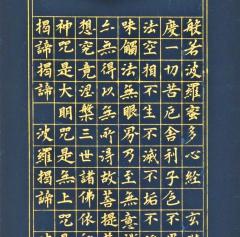 般若波羅蜜多心經 玄
度一切苦厄舍利子色不
法空相不生不滅不垢不
味觸法無眼界乃至無意
亦無得以無所得故菩提
想究竟涅槃三世諸佛依
神咒是大明咒是無上咒
揭諦揭諦 波羅揭諦